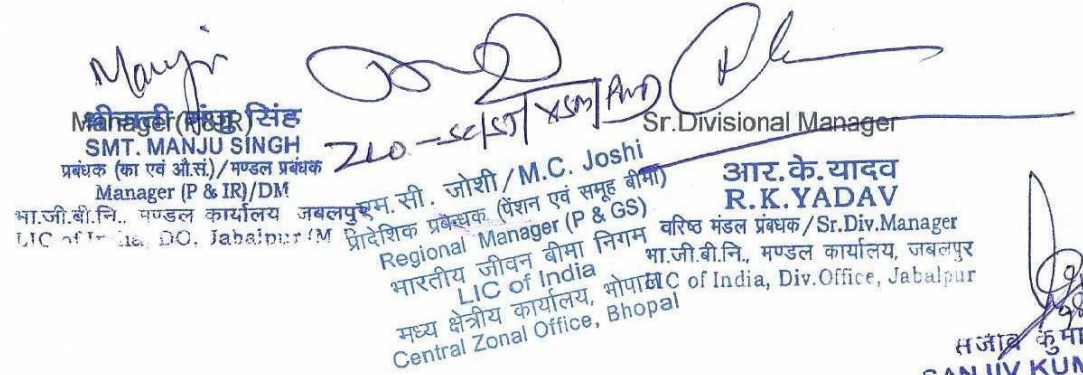 Manju
Manager (P&IR)
श्रीमती मंजु सिंह
SMT. MANJU SINGH
प्रबंधक (का एवं औ.सं.)/मण्डल प्रबंधक
Manager (P & IR)/DM
भा.जी.बी.नि., मण्डल कार्यालय जबलपुर
LIC of India, DO. Jabalpur (M
ZLO-SC/ST/XSM/PWD
एम. सी. जोशी / M.C. Joshi
प्रादेशिक प्रबन्धक (पेंशन एवं समूह बीमा)
Regional Manager (P & GS)
भारतीय जीवन बीमा निगम
LIC of India
मध्य क्षेत्रीय कार्यालय, भोपाल
Central Zonal Office, Bhopal
Sr.Divisional Manager
आर.के.यादव
R.K.YADAV
वरिष्ठ मंडल प्रबंधक/Sr.Div.Manager
भा.जी.बी.नि., मण्डल कार्यालय, जबलपुर
LIC of India, Div.Office, Jabalpur
SANJIV KUM